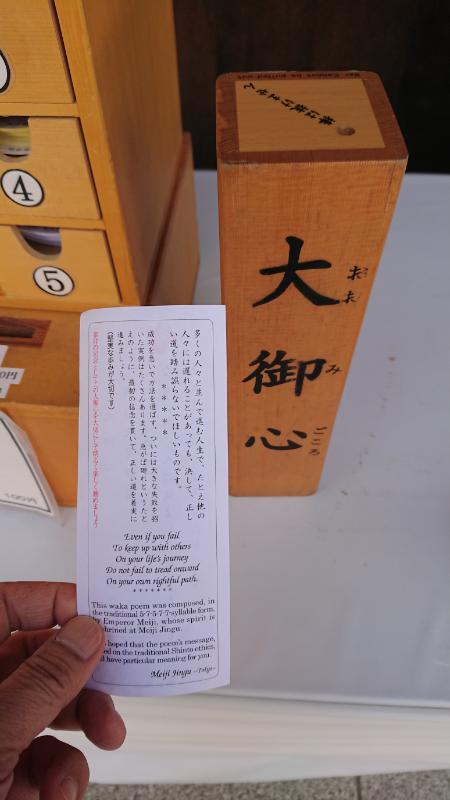 Bar Cannot be pulled out
棒は抜けません
大御心
おお
み
ごころ
4
5
多くの人々と並んで進む人生で、たとえ他の
人々には遅れることがあっても、決して、正し
い道を踏み誤らないでほしいものです。
* * * * *
成功を急いで方法を選ばず、ついには大きな失敗を招
いた実例はたくさんあります。急がば廻れといったと
えのように、最初の信念を貫いて、正しい道を着実に
進みましょう。
(堅実な歩みが大切です)
Even if you fail
To keep up with others
On your life's journey
Do not fail to tread onward
On your own rightful path.
*******
This waka poem was composed, in
the traditional 5-7-5-7-7-syllable form,
by Emperor Meiji, whose spirit is
enshrined at Meiji Jingu.
hoped that the poem's message,
on the traditional Shinto ethics,
have particular meaning for you.
Meiji Jingu ~Tokyo~
100円